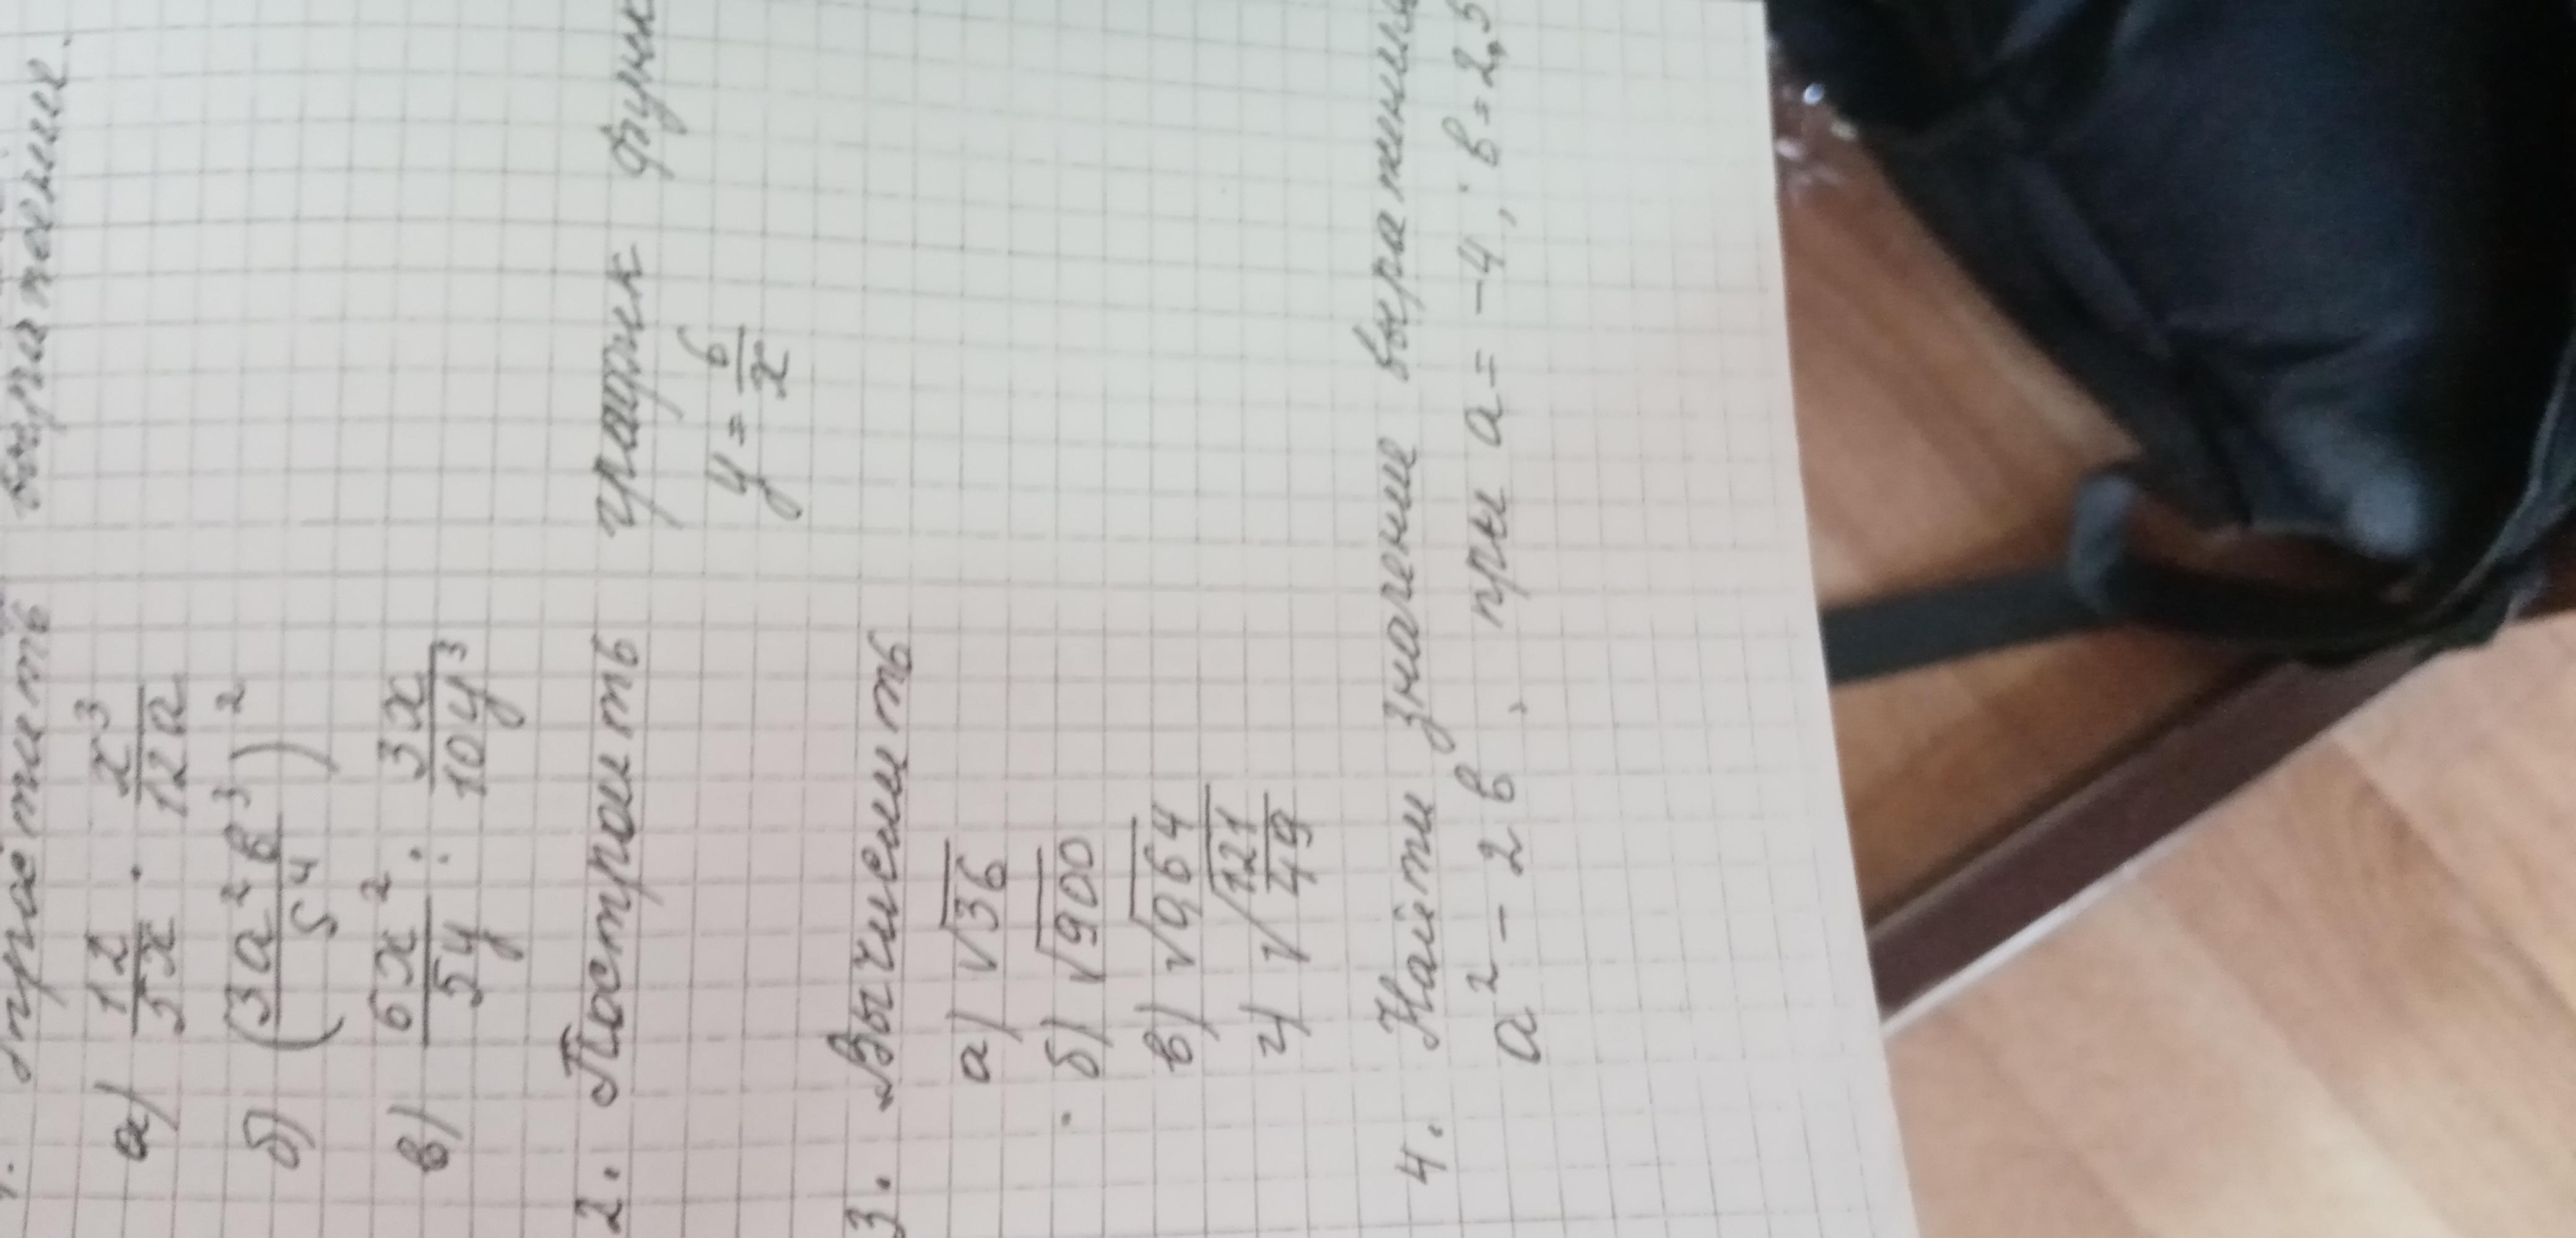 1. Упростить выражение.
а) 12/5x · x³/12a
б) (3a²b³/5⁴)²
в) 6x²/5y : 3x/10y³
2. Построить график функ
y = 6/x
3. Вычислить
а) √36
б) √900
в) √964
г) √121/49
4. Найти значение выражения
a² - 2b, при a = -4; b = 2,5